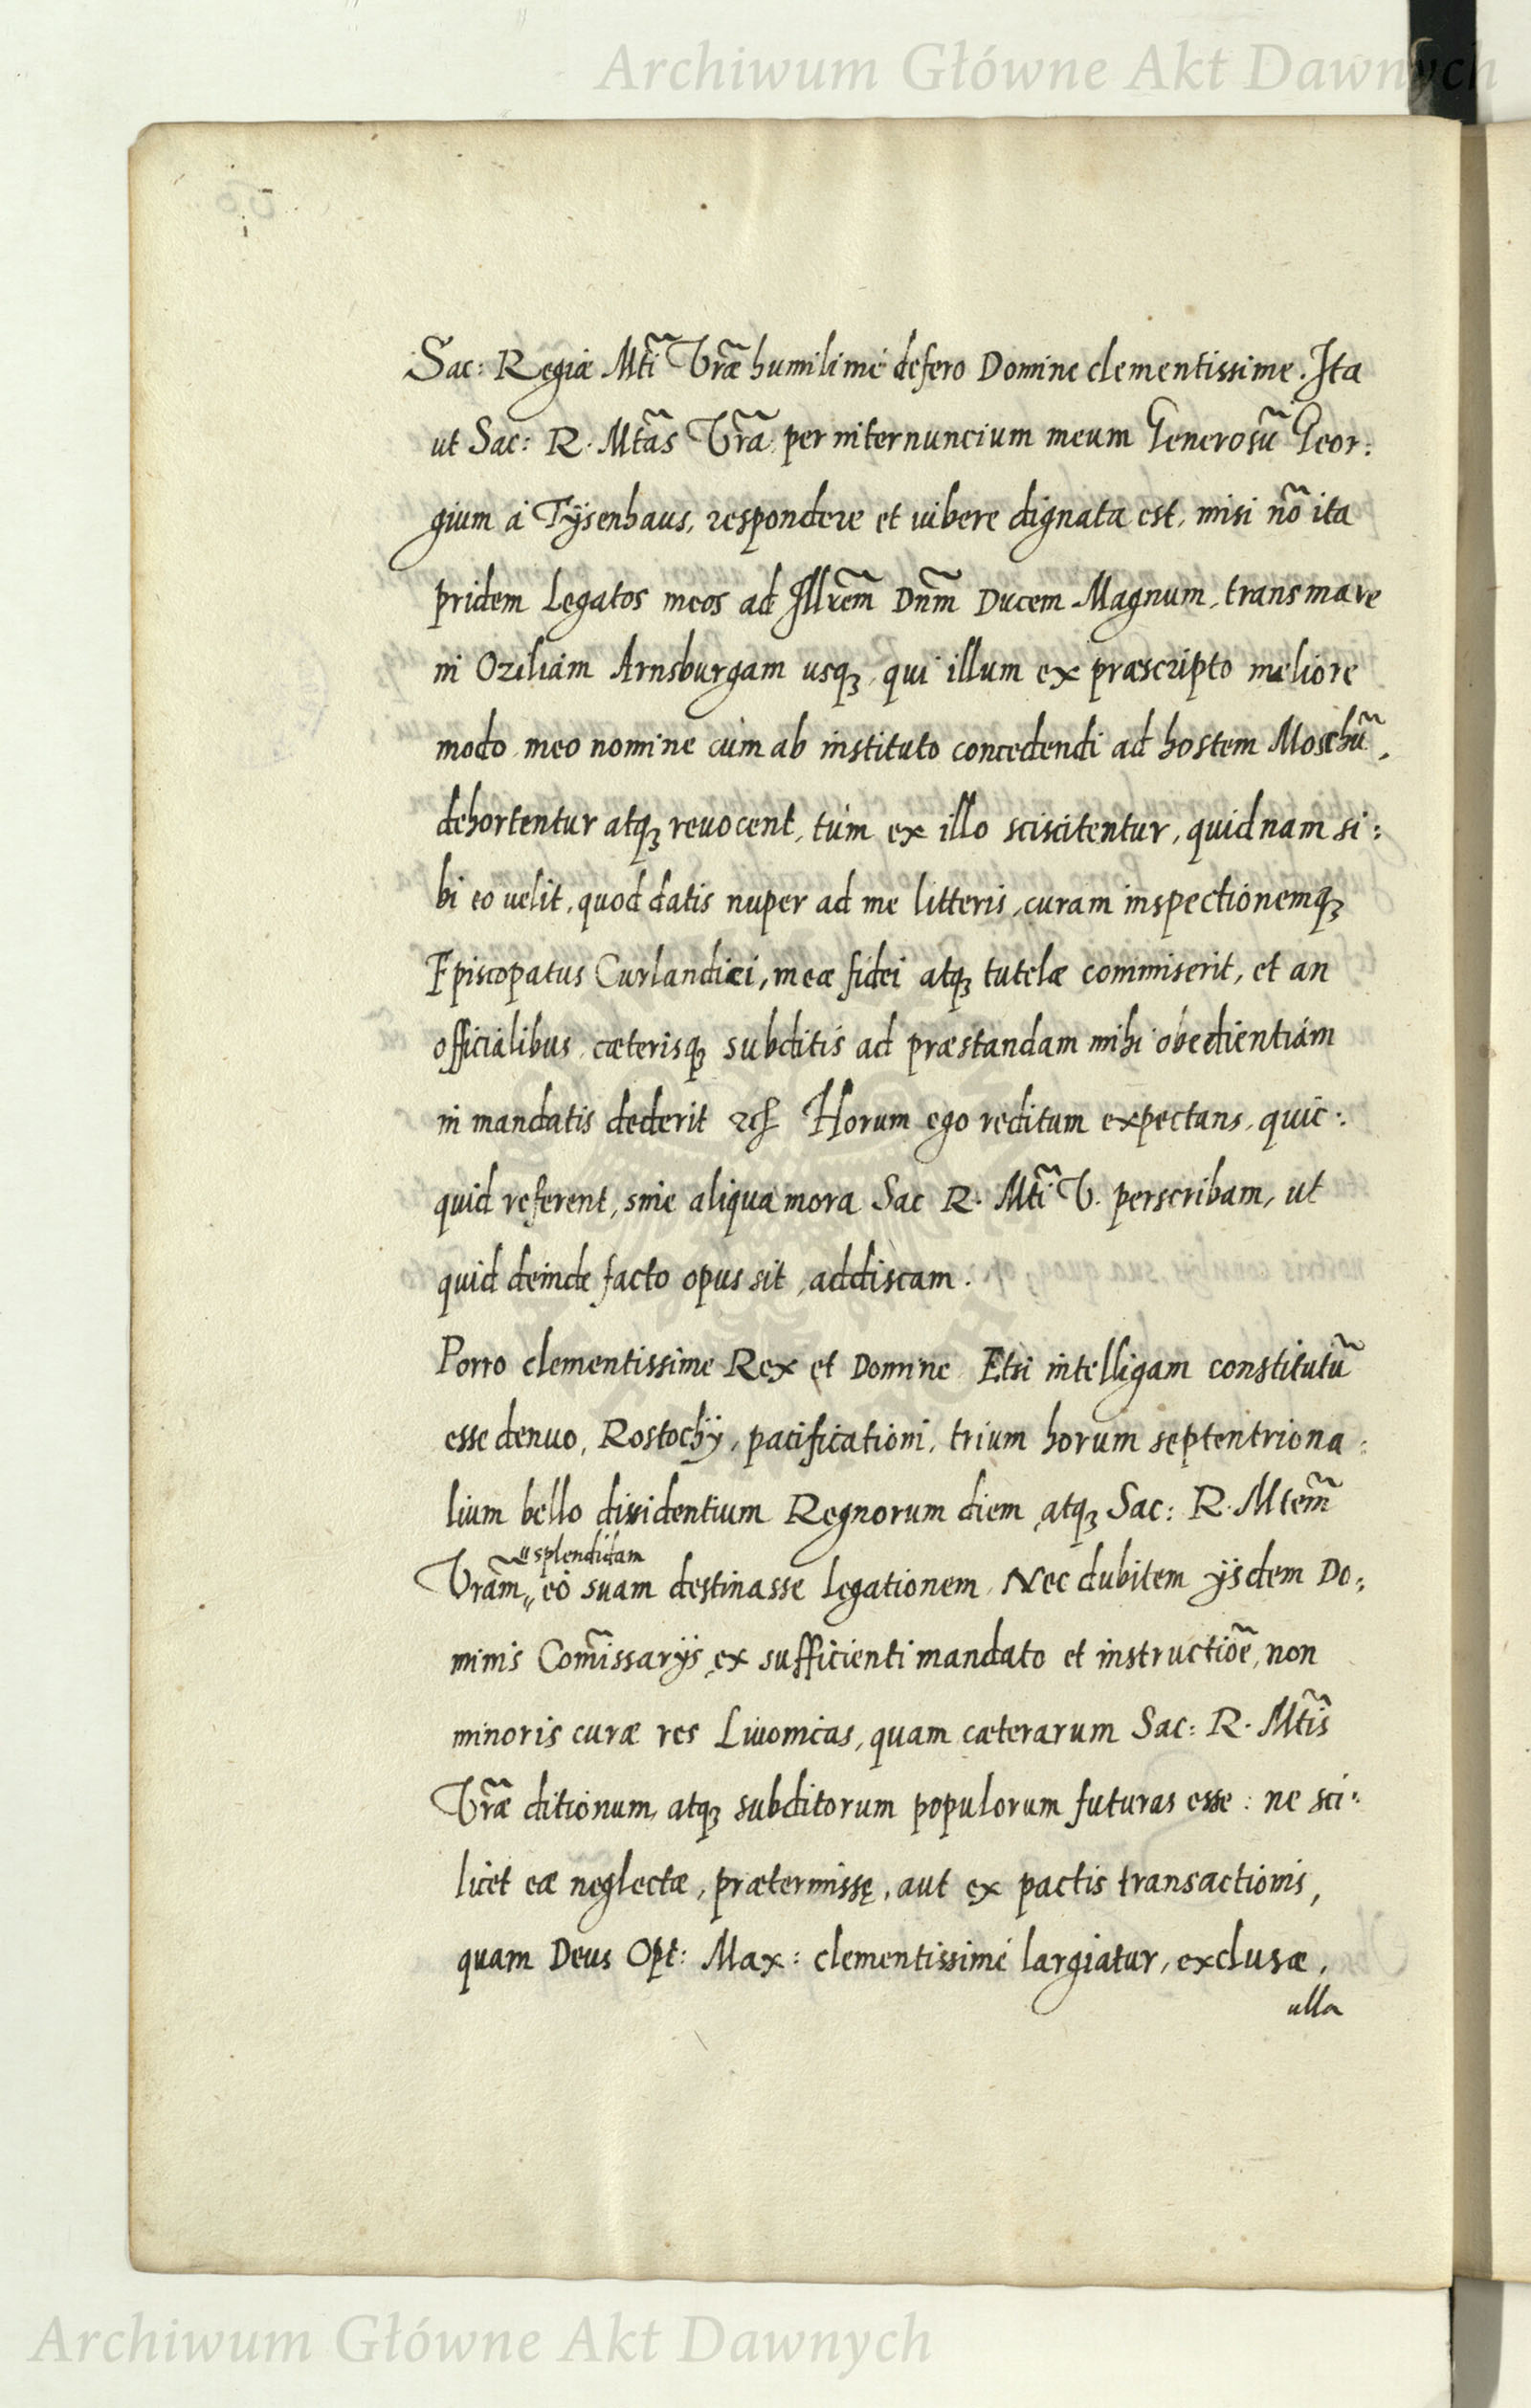 Archiwum Główne Akt Dawnych
Sac: Regiæ Mtĩ Vræ̃ humilimè defero Domine clementissime. Ita
ut Sac: R. Mtãs Vrã per internuncium meum Generosũ Geor:
gium à Tÿsenhaus, respondere et iubere dignata est, misi nõ ita
pridem Legatos meos ad Illrem̃ Dnm̃ Ducem Magnum, trans mare
in Oziliam Arnsburgam usqꝫ, qui illum ex præscripto meliore
modo meo nomine cùm ab instituto concedendi ad hostem Moschũ,
dehortentur atqꝫ reuocent, tùm ex illo sciscitentur, quidnam si:
bi eo uelit, quod datis nuper ad me litteris, curam inspectionemqꝫ
Episcopatus Curlandiæi, meæ fidei atqꝫ tutelæ commiserit, et an
officialibus cæterisqꝫ subditis ad præstandam mihi obedientiam
in mandatis dederit Horum ego reditum expectans, quic:
quid referent, sine aliqua mora Sac R. Mtĩ V. perscribam, ut
quid deinde facto opus sit, addiscam.
Porro clementissime Rex et Domine Etsi intelligam constitutũ
esse denuo, Rostochÿ, pacificationi, trium horum septentriona:
lium bello dissidentium Regnorum diem, atqꝫ Sac: R. Mtem̃
splendidam
Vram̃ eò suam destinasse legationem, Nec dubitem ÿsdem Do:
minis Com̃issarÿs ex sufficienti mandato et instructiõe, non
minoris curæ res Liuonicas, quam cæterarum Sac: R. Mtĩs
Vræ̃ ditionum, atqꝫ subditorum populorum futuras esse: ne sci:
licet eæ neglectæ, prætermissę, aut ex pactis transactionis,
quam Deus Opt: Max: clementissimè largiatur, exclusæ,
ulla
Archiwum Główne Akt Dawnych